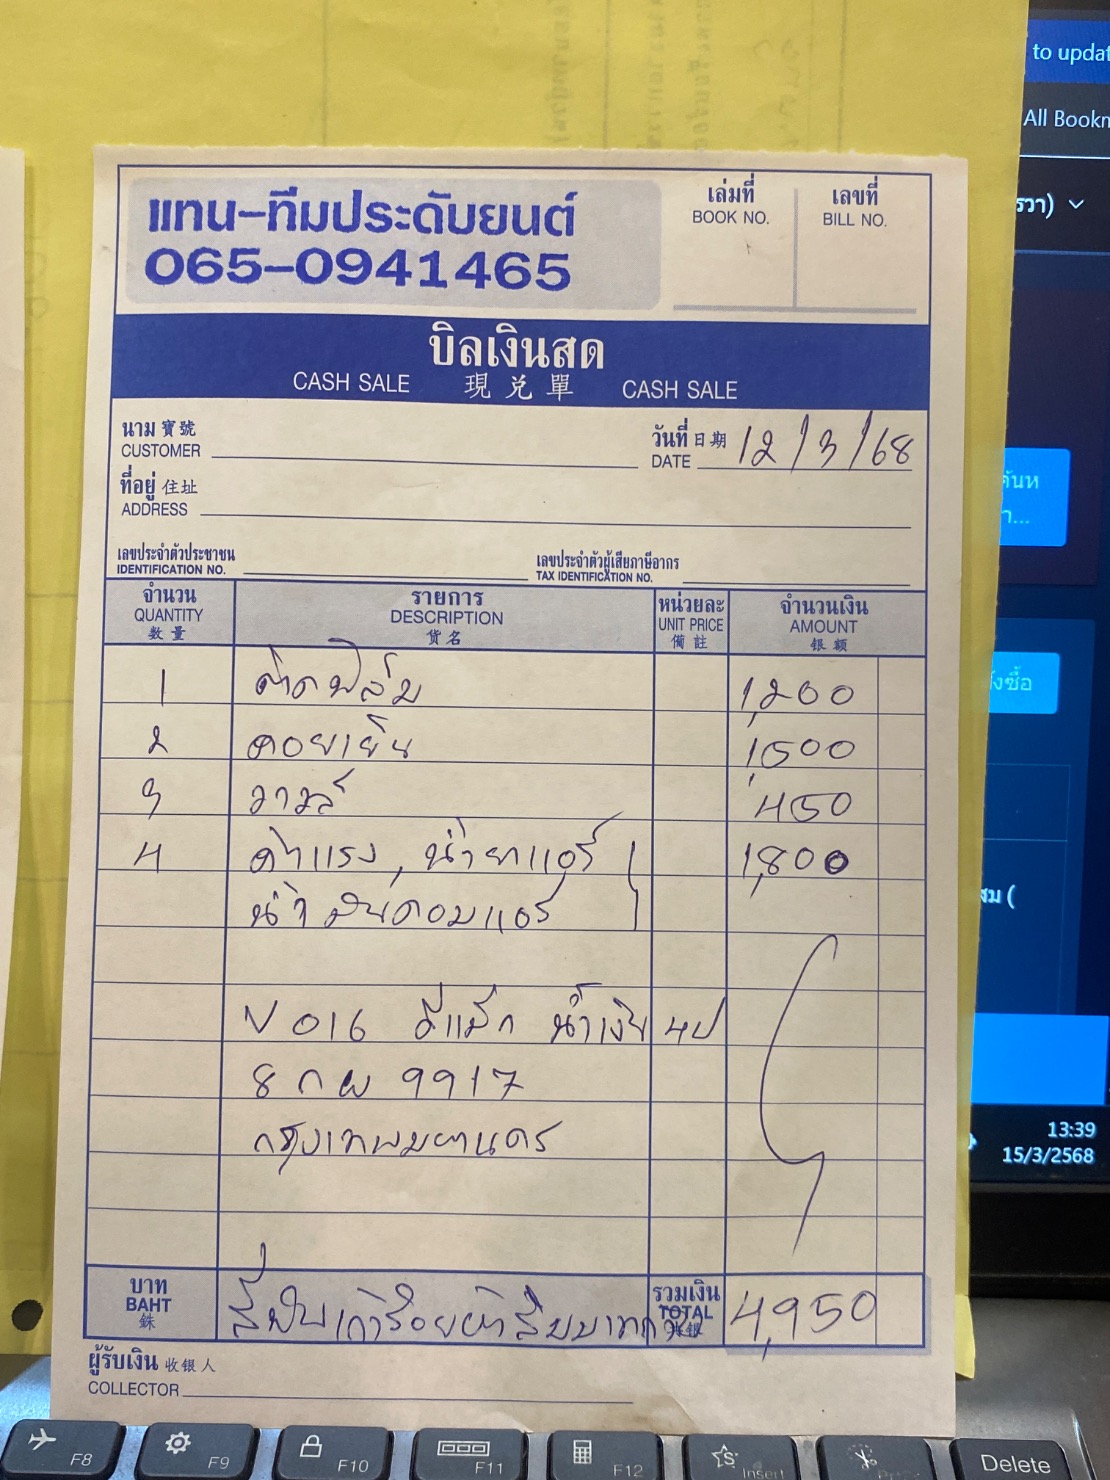 to updat
All Bookn
รวา)
แทน-ทีมประดับยนต์
065-0941465
เล่มที่
BOOK NO.
เลขที่
BILL NO.
บิลเงินสด
CASH SALE 現兑單 CASH SALE
นาม 寶號
CUSTOMER
วันที่ 日期
DATE 12/3/68
ที่อยู่ 住址
ADDRESS
เลขประจำตัวประชาชน
IDENTIFICATION NO.
เลขประจำตัวผู้เสียภาษีอากร
TAX IDENTIFICATION NO.
จำนวน
QUANTITY
数量
รายการ
DESCRIPTION
貨名
หน่วยละ
UNIT PRICE
備註
จำนวนเงิน
AMOUNT
银额
1 ติดฟิล์ม 1,200
2 คอยเย็น 1,500
3 วาวล์ 450
4 ค่าแรง, น้ำยาแอร์ 1,800
น้ำมันคอมแอร์
V016 ดีแม็ก น้ำเงิน 4ป
8 กผ 9917
กรุงเทพมหานคร
บาท
BAHT
銖
สี่พันเก้าร้อยห้าสิบบาท
รวมเงิน
TOTAL
4,950
ผู้รับเงิน 收银人
COLLECTOR
ค้นห
งซื้อ
สม (
13:39
15/3/2568
F8
F9
F10
F11
F12
Insert
Delete